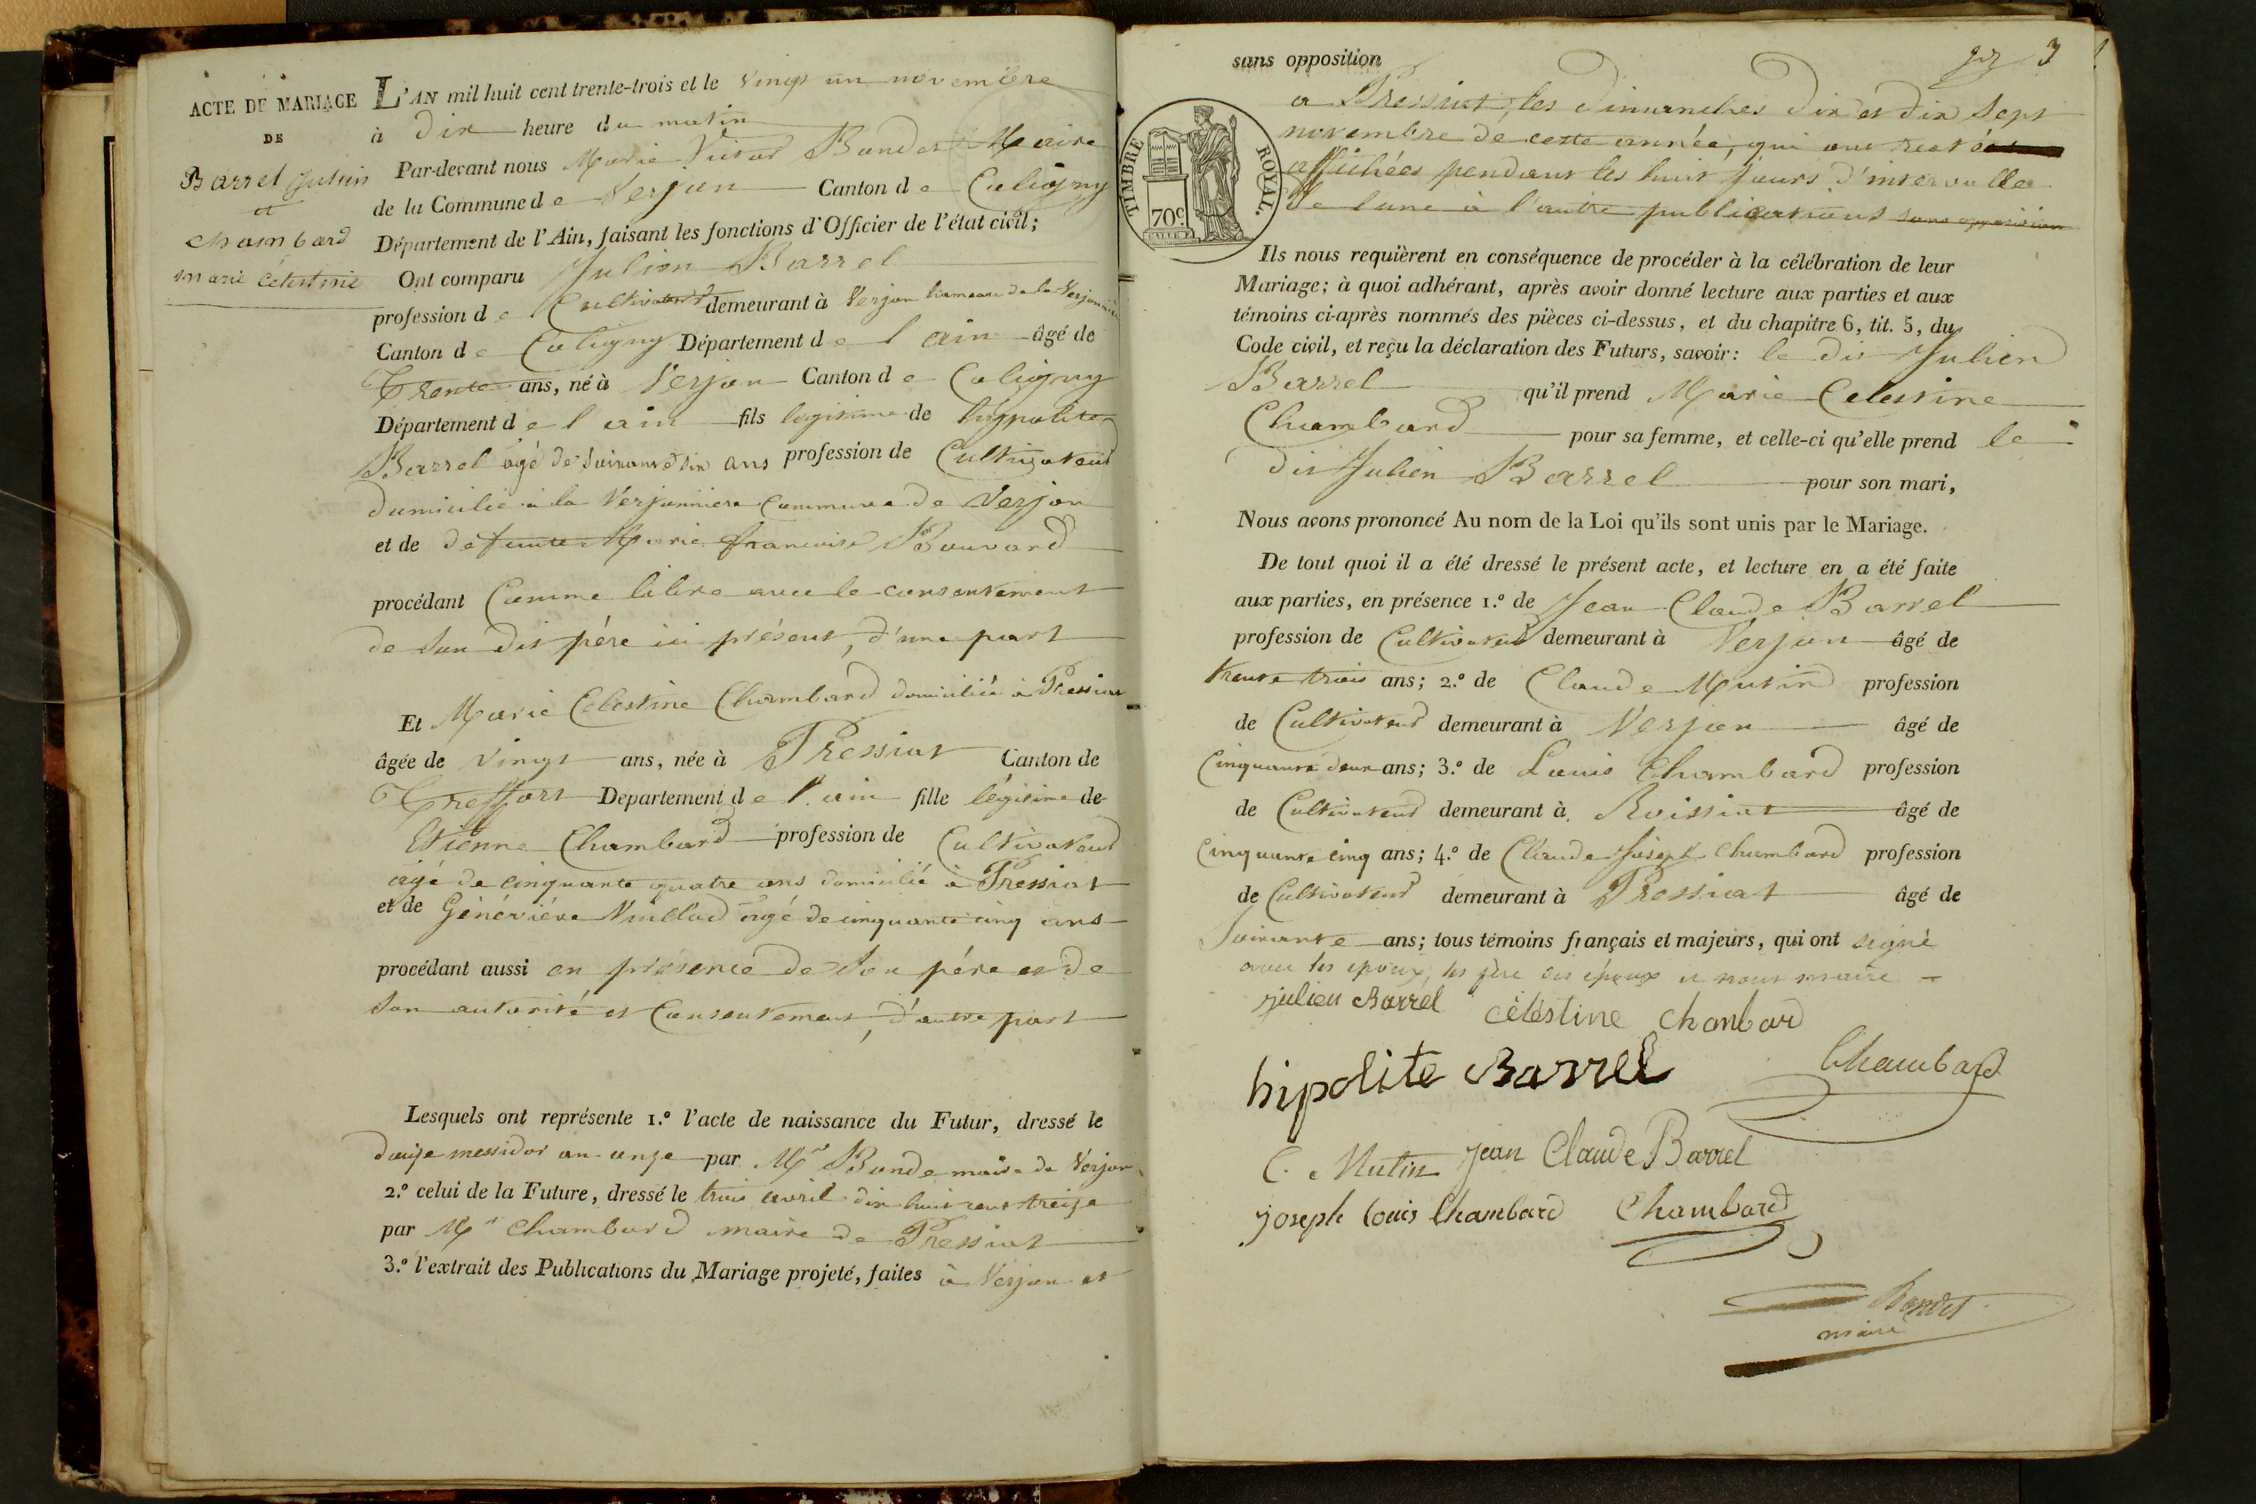 ACTE DE MARIAGE
DE
Barrel Julien
et
chambard
marie célestine
L'AN mil huit cent trente-trois et le vingt un novembre
à dix heure du matin
Par-devant nous Marie Victor Bondet Maire
de la Commune de Verjon Canton de Coligny
Département de l'Ain, faisant les fonctions d'Officier de l'état civil;
Ont comparu Julien Barrel
profession de Cultivateur demeurant à Verjon hameau de la Verjonnière
Canton de Coligny Département de l'ain âgé de
Trente ans, né à Verjon Canton de Coligny
Département de l'ain fils legitime de hippolite
Barrel agé de soixante dix ans profession de Cultivateur
domicilié à la Verjonniere Commune de Verjon
et de defunte Marie francoise Bouvard
procédant Comme libre avec le consentement
de Son dit père ici présent, d'une part
Et Marie Celestine Chambard domiciliée à Pressiat
âgée de vingt ans, née à Pressiat Canton de
Treffort Departement de l'ain fille légitime de
Etienne Chambard profession de Cultivateur
âgé de cinquante quatre ans domicilié à Pressiat
et de Généviéve agé de cinquante cinq ans
procédant aussi en présence de Son père et de
Son autorité et Consentement, d'autre part
Lesquels ont représente 1.º l'acte de naissance du Futur, dressé le
douze messidor an onze par Mr Bonde maire de Verjon
2.º celui de la Future, dressé le trois avril dix huit cent treize
par Mr Chambard maire de Pressiat
3.º l'extrait des Publications du Mariage projeté, faites à Verjon et
sans opposition
3
a Pressiat, les dimanches dix et dix Sept
novembre de cette année, qui ont
affichées pendant les huit jours d'intervalle
de lune à l'autre publications sans opposition
TIMBRE ROYAL.
70c
Ils nous requièrent en conséquence de procéder à la célébration de leur
Mariage; à quoi adhérant, après avoir donné lecture aux parties et aux
témoins ci-après nommés des pièces ci-dessus, et du chapitre 6, tit. 5, du
Code civil, et reçu la déclaration des Futurs, savoir: le dit Julien
Barrel qu'il prend Marie Celestine
Chambard pour sa femme, et celle-ci qu'elle prend le
dit Julien Barrel pour son mari,
Nous avons prononcé Au nom de la Loi qu'ils sont unis par le Mariage.
De tout quoi il a été dressé le présent acte, et lecture en a été faite
aux parties, en présence 1.º de Jean Claude Barrel
profession de Cultivateur demeurant à Verjon âgé de
trente trois ans; 2.º de Claude Mutin profession
de Cultivateur demeurant à Verjon âgé de
Cinquante deux ans; 3.º de Louis Chambard profession
de Cultivateur demeurant à Roissiat âgé de
Cinquante cinq ans; 4.º de Claude Joseph Chambard profession
de Cultivateur demeurant à Pressiat âgé de
Soixante ans; tous témoins français et majeurs, qui ont signé
avec les epoux, les père des époux et nous maire
julien Barrel célestine chanbard
hipolite Barrel Chambard
C. Mutin jean Claude Barrel
joseph louis Chambard Chambard
Bondet
maire